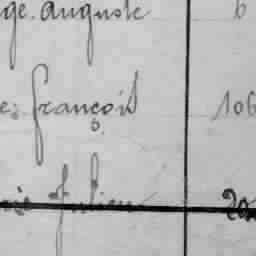 ge. auguste 6
e. françois 106
julien